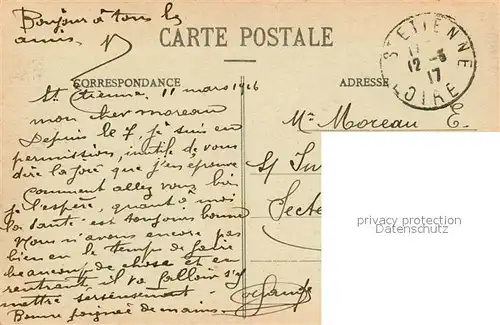 Bonjour à tous les
amis.
CARTE POSTALE
CORRESPONDANCE
ADRESSE
ST ETIENNE
12-3
17
LOIRE
St Etienne, 11 mars 1916
mon cher moreau
Depuis le 7, je suis en
permission, inutile de vous
dire la joie que j'en éprouve
Comment allez vous bien
je l'espère, quant à moi
la santé est toujours bonne
Nous n'avons encore pas
bien eu le temps de faire
beaucoup de chose et en
rentrant, il va falloir s'y
mettre serseusement
Bonne poignée de mains.
Mr Moreau E.
S/
Secte
privacy protection
Datenschutz